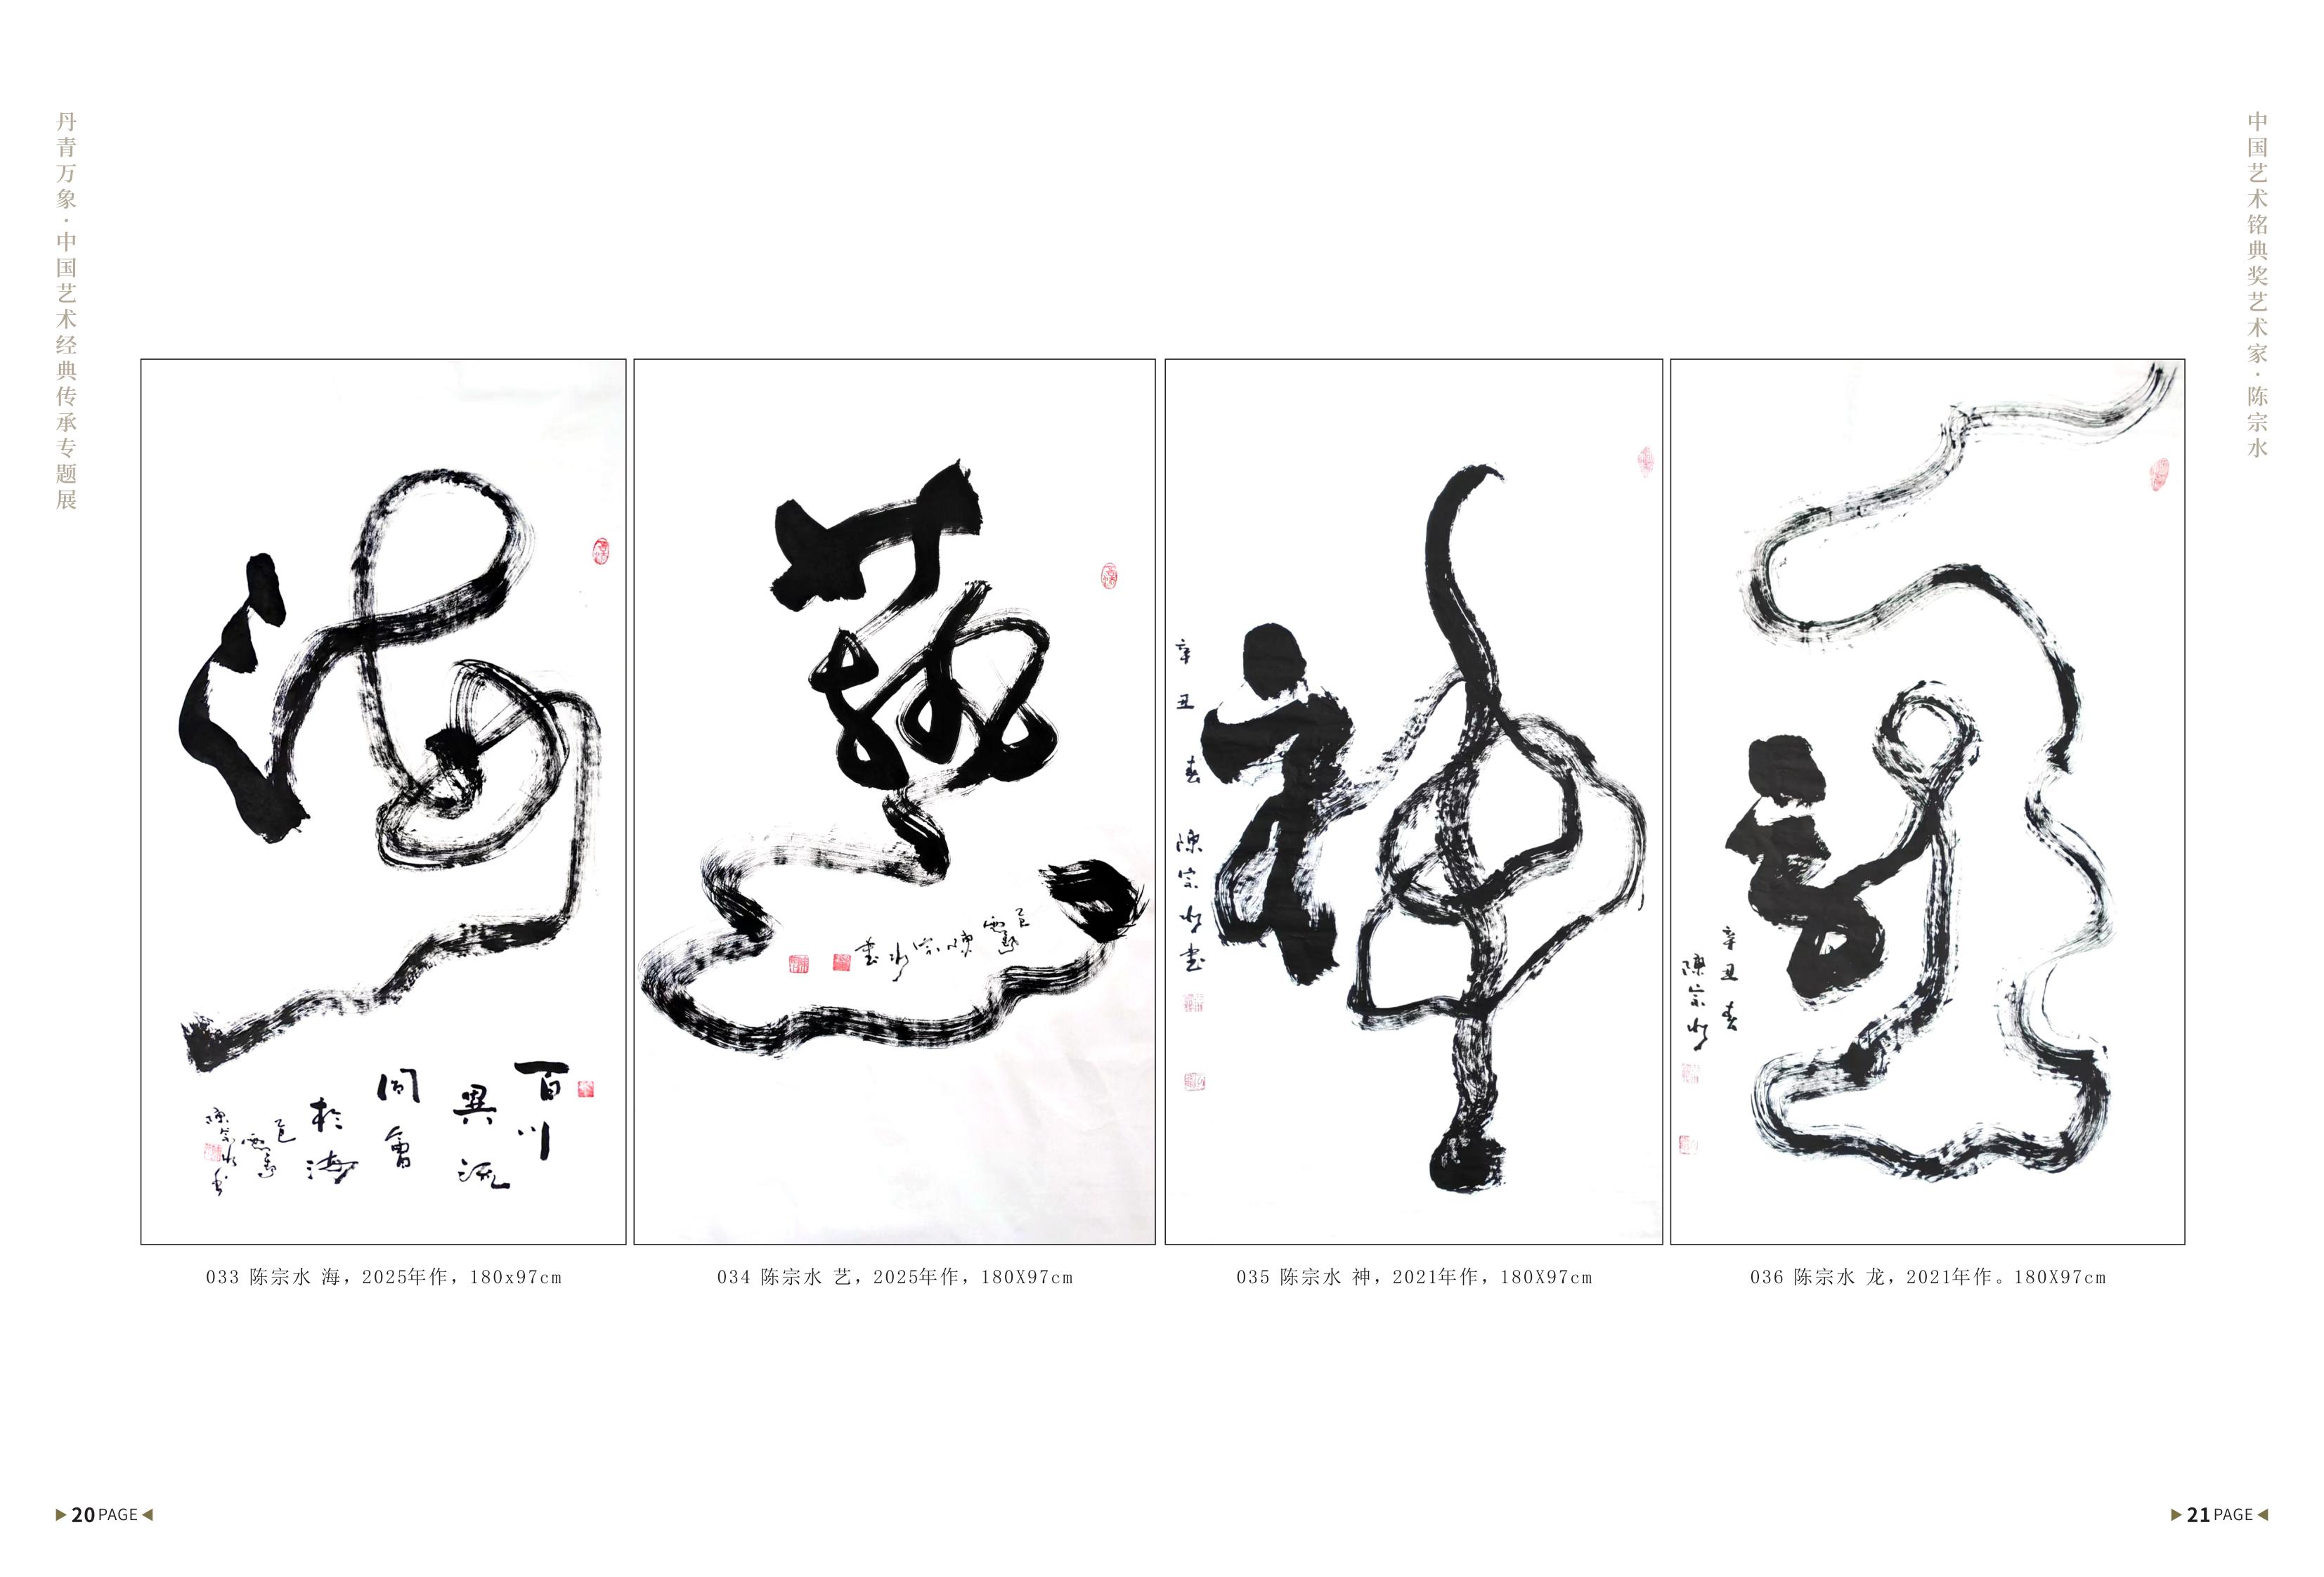 丹青万象·中国艺术经典传承专题展
中国艺术铭典奖艺术家·陈宗水
海
百川
異流
同會
於海
乙巳
陳宗水書
藝
乙巳
陳宗水書
神
辛丑春陳宗水書
龍
辛丑春
陳宗水
033 陈宗水 海，2025年作，180x97cm
034 陈宗水 艺，2025年作，180X97cm
035 陈宗水 神，2021年作，180X97cm
036 陈宗水 龙，2021年作。180X97cm
20 PAGE
21 PAGE